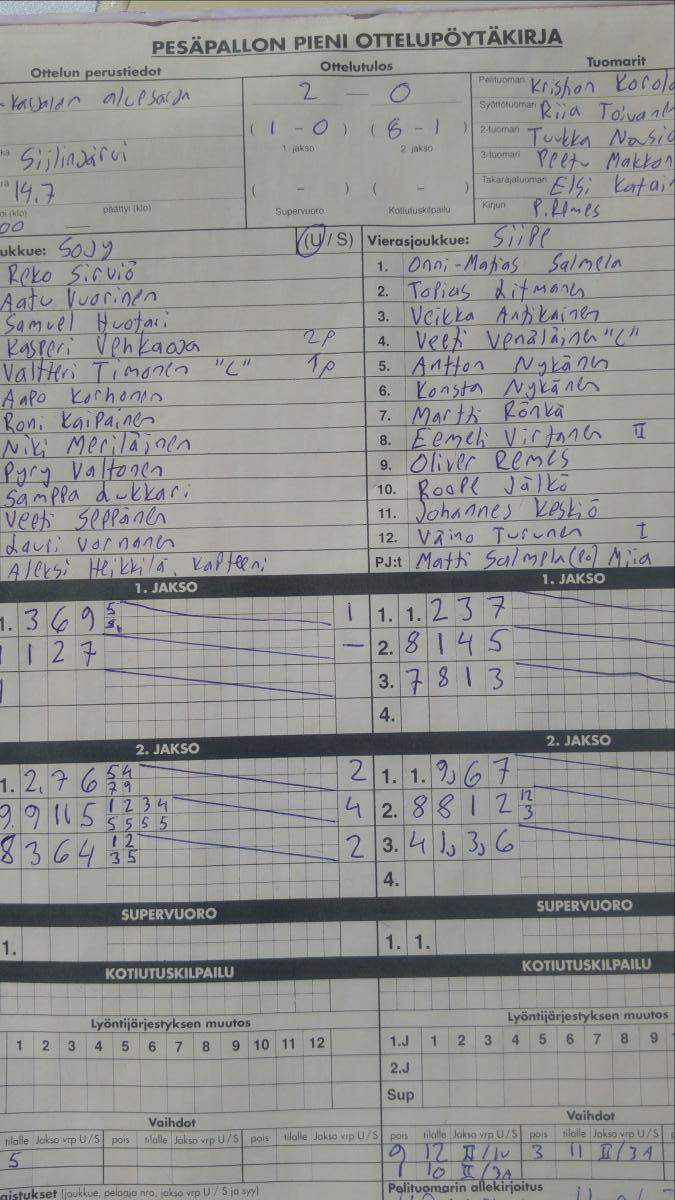 PESÄPALLON PIENI OTTELUPÖYTÄKIRJA
Ottelun perustiedot
Ottelutulos
Tuomarit
2 — 0
( 1 - 0 ) ( 8 - 1 )
1. jakso 2. jakso
( - ) ( - )
Supervuoro Kotiutuskilpailu
Siilinjärvi
14.7
päättyi (klo)
Pelituomari
Syöttötuomari Riia
2-tuomari Tuukka
3-tuomari Peetu Makkon
Takarajatuomari Elsi
Kirjuri P. Remes
ukkue: SoJy (U / S)
Reko Sirviö
Aatu Vuorinen
Samuel Huotari
Kasperi 2p
Valtteri Timonen "C" 1p
Aapo Korhonen
Roni Kaipainen
Niki Meriläinen
Pyry Valtonen
Samppa Lukkari
Veeti Seppänen
Lauri Vornanen
Aleksi Heikkilä, Kapteeni
Vierasjoukkue: SiiPe
1. Onni-Matias Salmela
2. Topias Litmanen
3. Veikka Antikainen
4. Veeti Venäläinen "C"
5. Antton Nykänen
6. Konsta Nykänen
7. Martti Rönkä
8. Eemeli Virtanen II
9. Oliver Remes
10. Roope Jälkö
11. Johannes Keskiö
12. Väinö Turunen I
PJ:t Matti Salmela (PJ) Miia
1. JAKSO
1. 3 6 9 5 1
1 2 7 —
1. JAKSO
1. 1. 2 3 7
2. 8 1 4 5
3. 7 8 1 3
4.
2. JAKSO
1. 2, 7 6 5 4 2
7 9
9 9 11 5 1 2 3 4 4
5 5 5 5
8 3 6 4 1 2 2
3 5
2. JAKSO
1. 1. 9, 6 7
2. 8 8 1 2 12
3
3. 4 1, 3, 6
4.
SUPERVUORO
1.
SUPERVUORO
1. 1.
KOTIUTUSKILPAILU
KOTIUTUSKILPAILU
Lyöntijärjestyksen muutos
1 2 3 4 5 6 7 8 9 10 11 12
Lyöntijärjestyksen muutos
1.J 1 2 3 4 5 6 7 8 9
2.J
Sup
Vaihdot
tilalle Jakso vrp U / S pois tilalle Jakso vrp U / S pois tilalle Jakso vrp U / S
5
Vaihdot
pois tilalle Jakso vrp U / S pois tilalle Jakso vrp U / S
9 12 II/1U 3 11 II/3A
9 10 II/3A
aistukset (joukkue, pelaaja nro, jakso vrp U / S ja syy)
Pelituomarin allekirjoitus